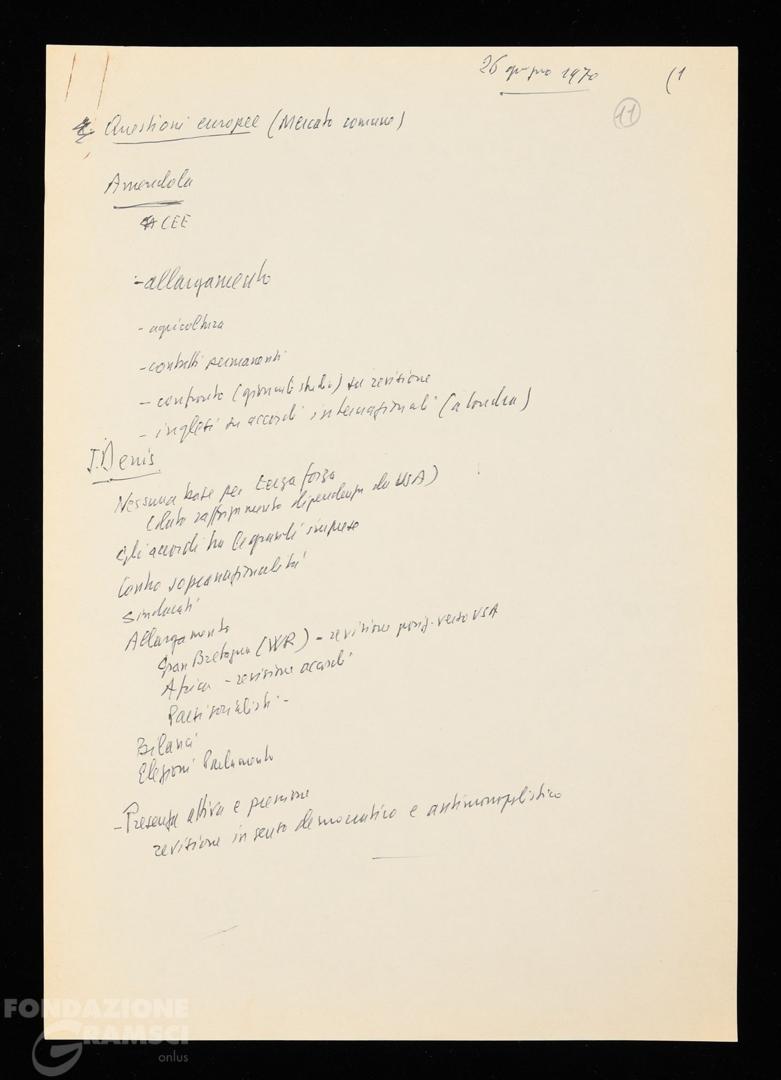 26 giugno 1970
(1
11
Questioni europee (Mercato comune)
Amendola
CEE
- allargamento
- agricoltura
- contatti permanenti
- confronto (giornate studio) su revisione
- inglesi su accordi internazionali (a Londra)
J. Denis
Nessuna base per terza forza
(dato rafforzamento dipendenza da USA)
gli accordi tra le grandi imprese
Contro sopranazionalità
Sindacati
Allargamento
Gran Bretagna ( ) - revisione posiz. verso USA
Africa - revisione accordi
Paesi socialisti -
Bilanci
Elezioni Parlamento
- Presenza attiva e pressione
revisione in senso democratico e antimonopolistico
FONDAZIONE
GRAMSCI
onlus